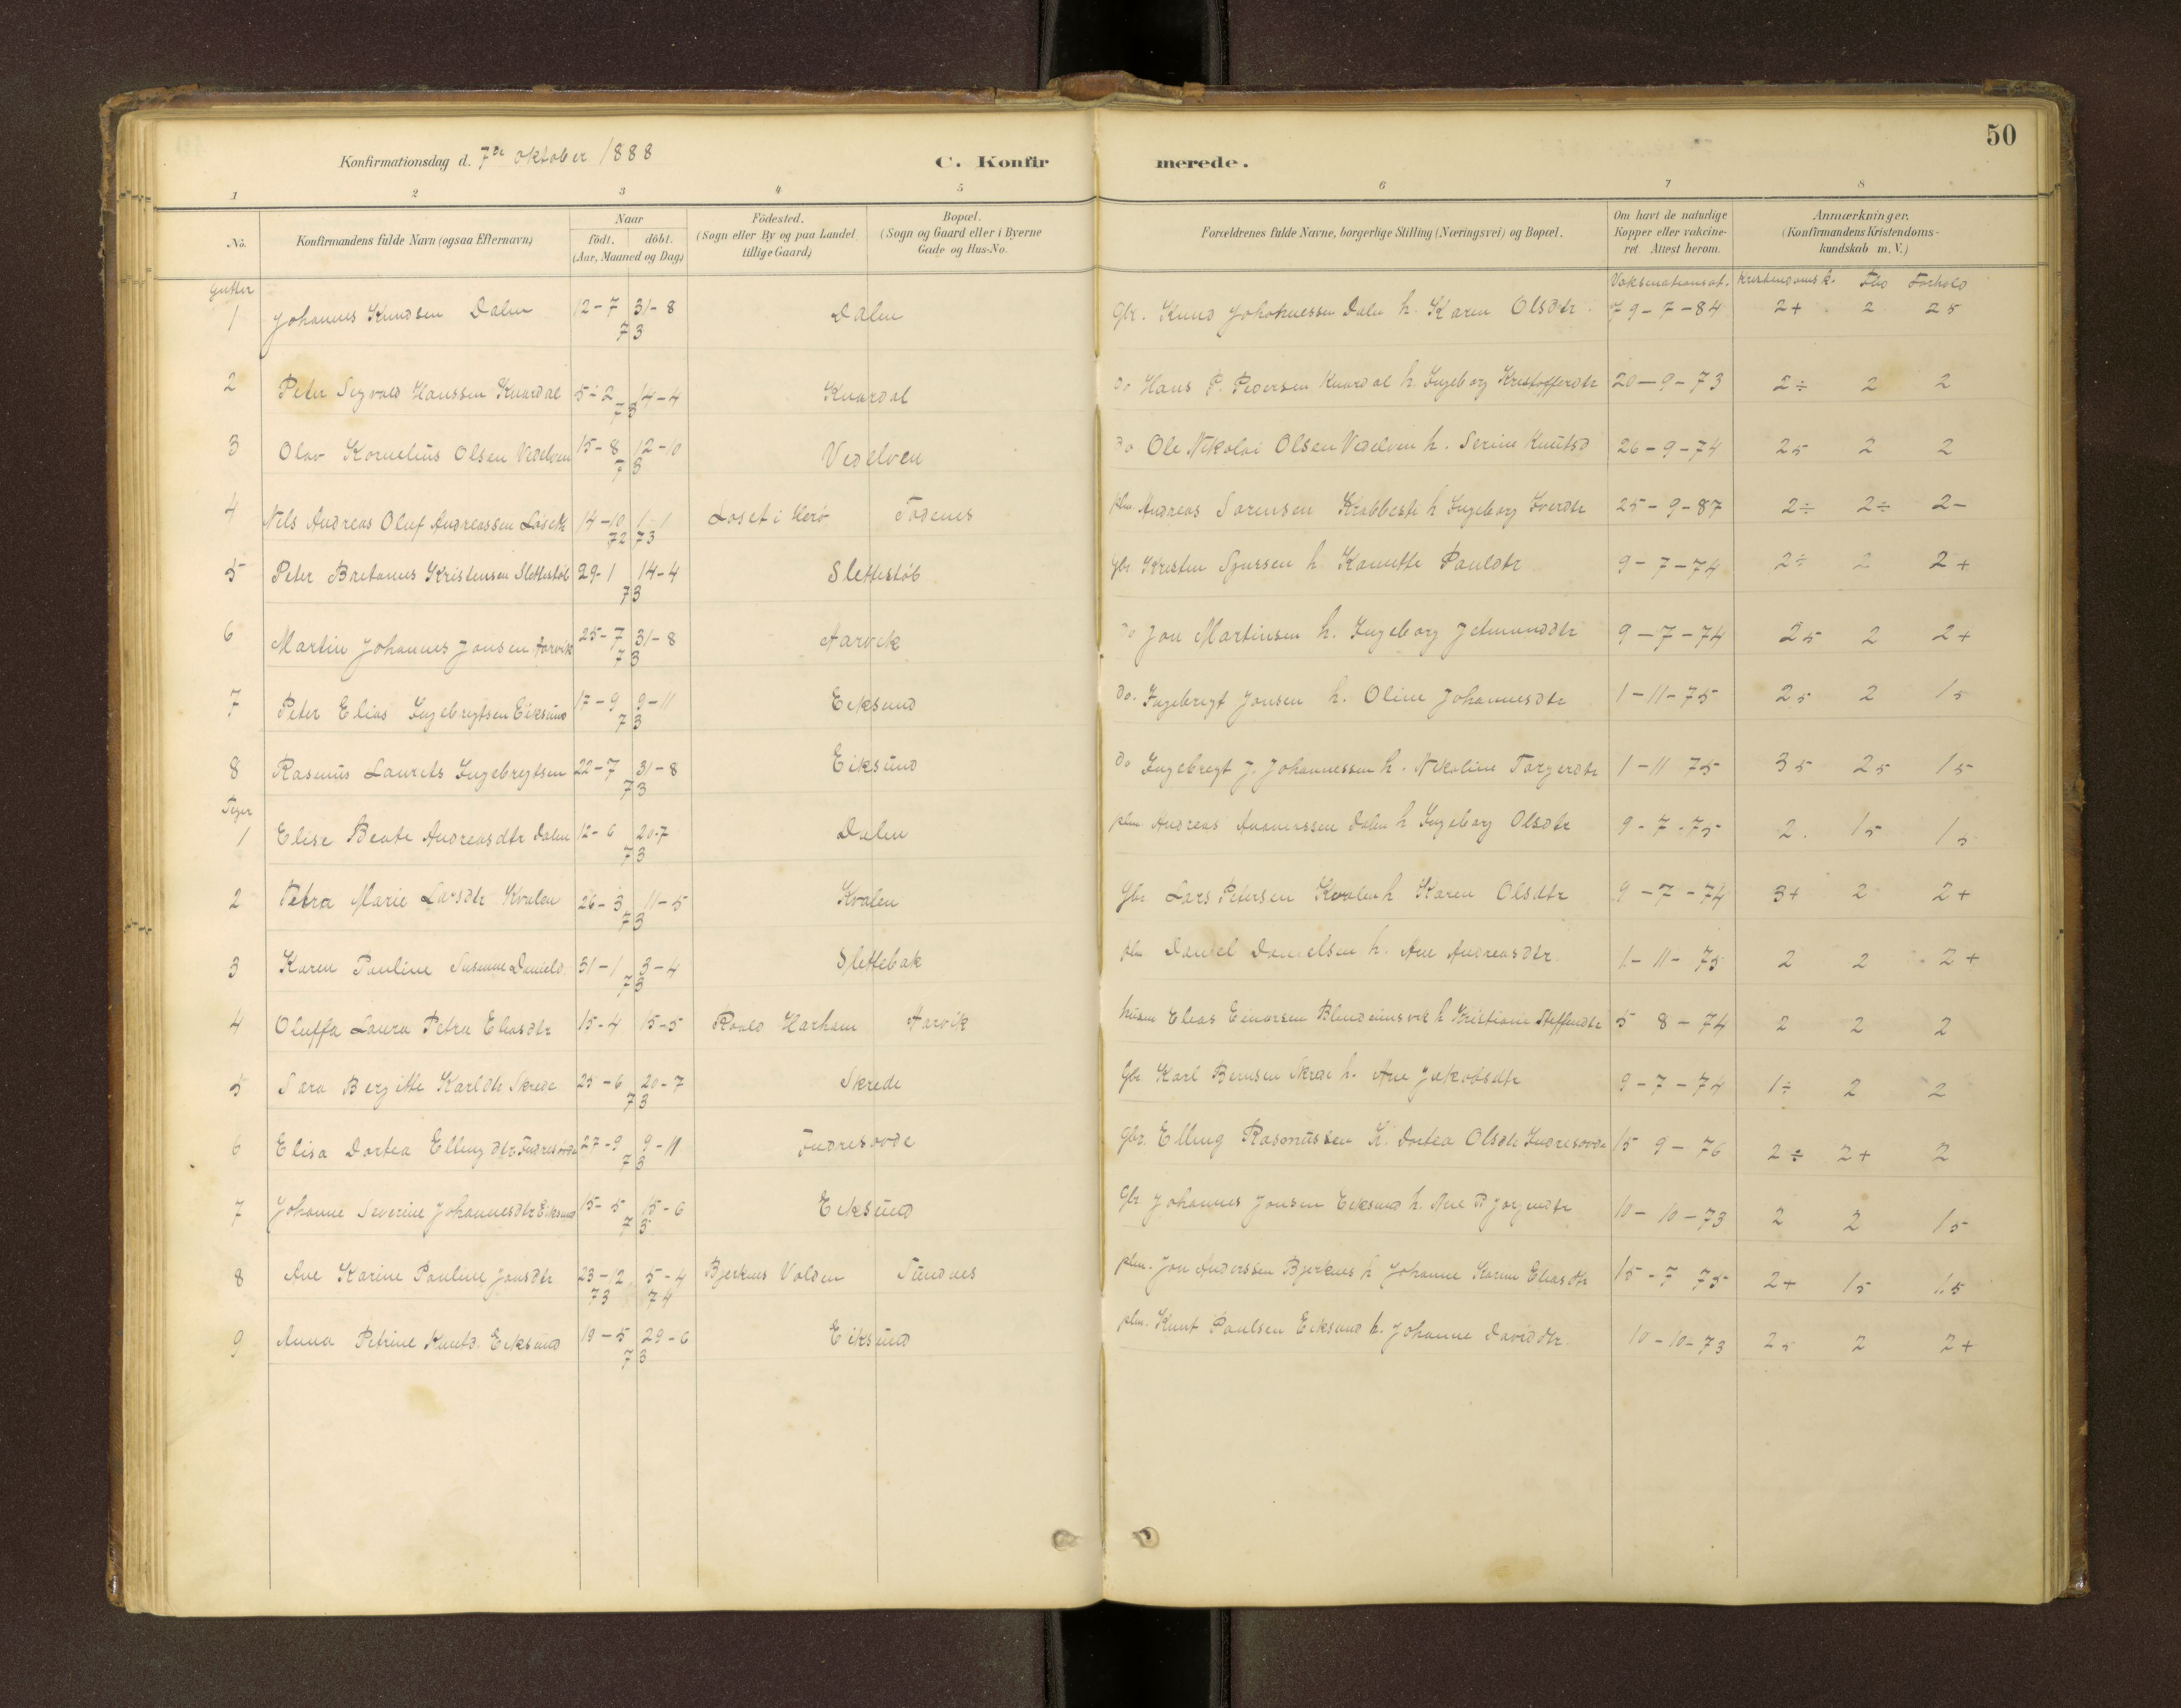 50
Konfirmationsdag d. 7de oktober 1888 C. Konfir merede.
1 2 3 4 5 6 7 8
No. Konfirmandens fulde Navn (ogsaa Efternavn) Naar födt. döbt. (Aar, Maaned og Dag) Födested. (Sogn eller By og paa Landet tillige Gaard) Bopæl. (Sogn og Gaard eller i Byerne Gade og Hus-No. Forældrenes fulde Navne, borgerlige Stilling (Næringsvei) og Bopæl. Om havt de naturlige Kopper eller vakcineret. Attest herom. Anmærkninger. (Konfirmandens Kristendomskundskab m. V.)
Gutter Vaksinationsat. Kristendomsk. Flid Forhold
1 Johannes Knudsen Dalen 12-7 31-8 73 Dalen Gbr. Knud Johannessen Dalen h. Karen Olsdtr. 9-7-84 2+ 2 25
2 Peter Sigvald Hanssen Knardal 5-2 14-4 73 Knardal do Hans P. Pedersen Knardal h. Ingeborg Kristofferdtr 20-9-73 2÷ 2 2
3 Olav Kornelius Olsen Vedelven 15-8 12-10 73 Vedelven do Ole Nikolai Olsen Vedelven h. Serine Knutsd 26-9-74 25 2 2
4 Nils Andreas Oluf Andreassen Løset 14-10 72 1-1 73 Løset i Herö Todenes plm. Andreas Sørensen Krabbest h Ingeborg Iverdtr 25-9-87 2÷ 2÷ 2-
5 Peter Bastanus Kristensen Slettestöl 29-1 14-4 73 Slettestöl Gbr. Kristen Sjursen h. Kanutte Pauldtr 9-7-74 2÷ 2 2+
6 Martin Johannes Jonsen Aarvik 25-7 31-8 73 Aarvik do Jon Martinsen h. Ingeborg Jetmunddtr 9-7-74 25 2 2+
7 Peter Elias Ingebrigtsen Eiksund 17-9 9-11 73 Eiksund do. Ingebrigt Jonsen h. Oline Johannesdtr 1-11-75 25 2 15
8 Rasmus Laurits Ingebrigtsen 22-7 31-8 73 Eiksund do Ingebrigt J. Johannessen h. Nikoline Torgerdtr 1-11 75 35 25 15
Piger
1 Elise Beate Andreasdtr Dalen 12-6 20-7 73 Dalen plm Andreas Dalen h Ingeborg Olsdtr 9-7-75 2. 15 15
2 Petra Marie Larsdtr Kvalen 26-3 11-5 73 Kvalen Gbr Lars Petersen Kvalen h Karen Olsdtr 9-7-74 3+ 2 2+
3 Karen Pauline Susanne Danield. 31-1 3-4 73 Slettebak plm Daniel Danielsen h. Ane Andreasdtr. 1-11-75 2 2 2+
4 Oluffa Laura Petra Eliasdtr 15-4 15-5 Roald Harham Aarvik husm Elias Einarsen Blindeimsvik h Kristiane Steffendtr 5 8-74 2 2 2
5 Sara Bergitte Karldtr Skrede 25-6 20-7 73 Skrede Gbr. Karl Bernsen Skrede h. Ane Jakobsdtr 9-7-74 1÷ 2 2
6 Elisa Dortea Ellingdtr. Indresovde 27-9 9-11 73 Indresovde Gbr. Elling Rasmussen h. Dortea Olsdtr Indresovde 15 9-76 2÷ 2+ 2
7 Johanne Severine Johannesdtr Eiksund 15-5 15-6 73 Eiksund Gbr Johannes Jonsen Eiksund h. Ane B. 10-10-73 2 2 15
8 Ane Karine Pauline Jonsdtr 23-12 73 5-4 74 Bjerknes Volden Sundnes plm. Jon Anderssen Bjerknes h Johanne Karine Eliasdtr 15-7 75 2+ 15 1.5
9 Anna Petrine Knutd. Eiksund 19-5 29-6 73 Eiksund plm. Knut Paulsen Eiksund h. Johanne Daviddtr. 10-10-73 25 2 2+